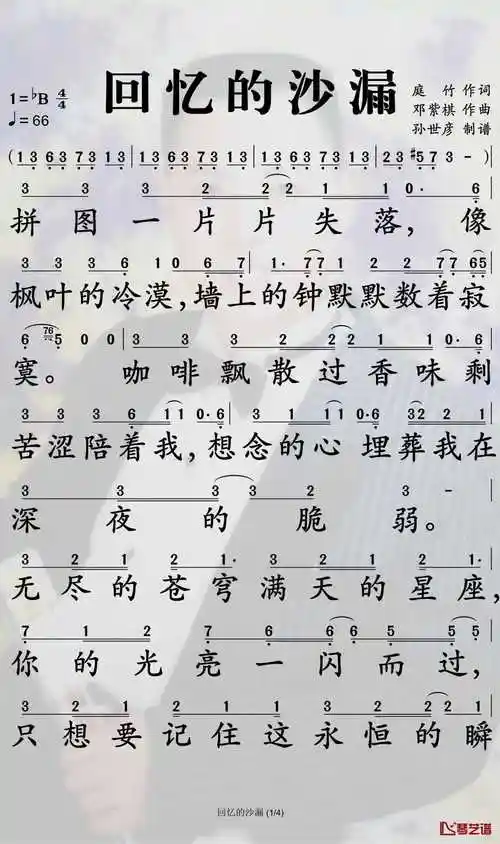 回忆的沙漏
1=♭B 4/4
♩=66
庭竹 作词
邓紫棋 作曲
孙世彦 制谱
(1363731313 | 1363731313 | 1363731313 | 23#573-)
3 3 3 2 2 2 1 1 | 1 0·6
拼图一片片失落，像
3 3 3 6 1 0 6 7 | 1· 7 7 1 2 2 7 7 6 5
枫叶的冷漠，墙上的钟默默数着寂
6 76 5 0 0 | 3 3 3 2 2 2 1 1 | 1 0·6
寞。咖啡飘散过香味剩
3 3 3 6 1 1 0·6 | 3 3 3 3 1 1 0·6 3 2 2 1
苦涩陪着我，想念的心 埋葬我在
3 3 3 2 3 3 -
深夜的脆弱。
3 2 1 2 1· | 3 2 1 2 1·
无尽的苍穹满天的星座，
7 1 2 7 6 6 6 5 5 5
你的光亮一闪而过，
3 2 1 2 1 3 2 1 1 2
只想要记住这永恒的瞬
回忆的沙漏 (1/4)
琴艺谱